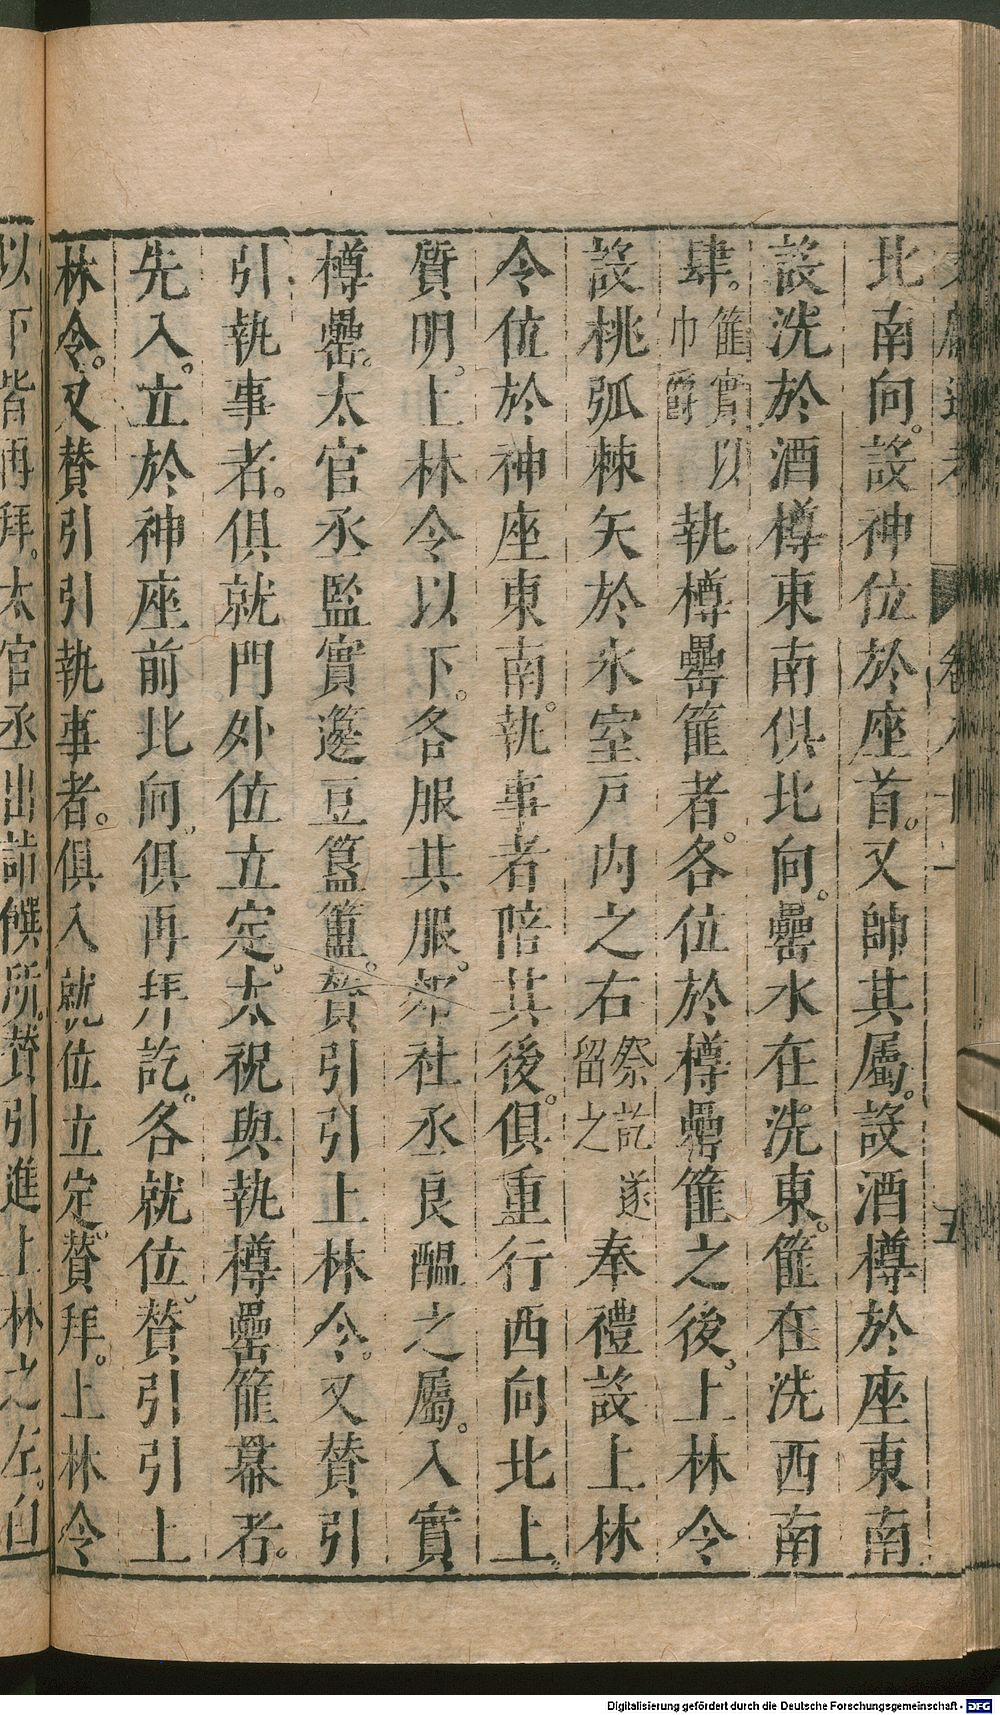 北南向。設神位於座首。又帥其屬。設酒樽於座東南
設洗於酒樽東南俱北向。罍水在洗東。篚在洗西南
肆。篚實以巾爵執樽罍篚者。各位於樽罍篚之後。上林令
設桃弧棘矢於氷室戸内之右祭訖遂留之奉禮設上林
令位於神座東南。執事者陪其後。俱重行西向北上。
質明。上林令以下。各服其服。郊社丞良醞之屬。入實
樽罍。太官丞監實籩豆簋簠。賛引引上林令。又賛引
引執事者。俱就門外位立定。太祝與執樽罍篚冪者。
先入。立於神座前北向。俱再拜訖。各就位。賛引引上
林令。又賛引引執事者。俱入就位立定。賛拜。上林令
以下皆再拜。太官丞出詣饌所。賛引進上林之左。自
五
Digitalisierung gefördert durch die Deutsche Forschungsgemeinschaft - DFG